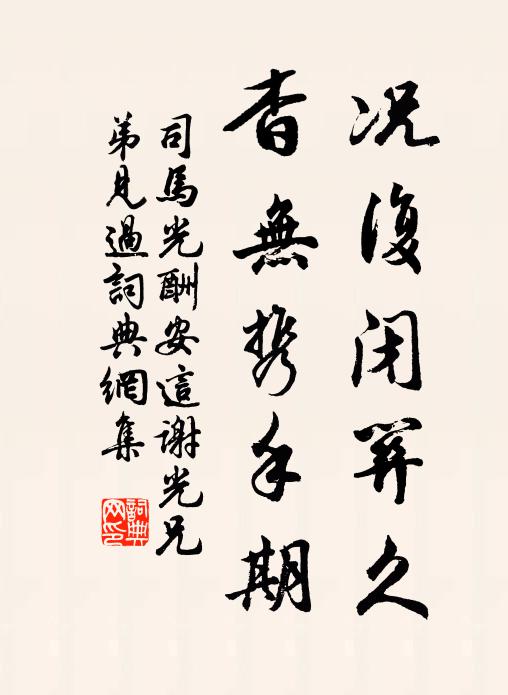 况復闭笄久
杳無携手期
司馬光酬安這謝光兄
弟見過詞典網集
詞典
网印